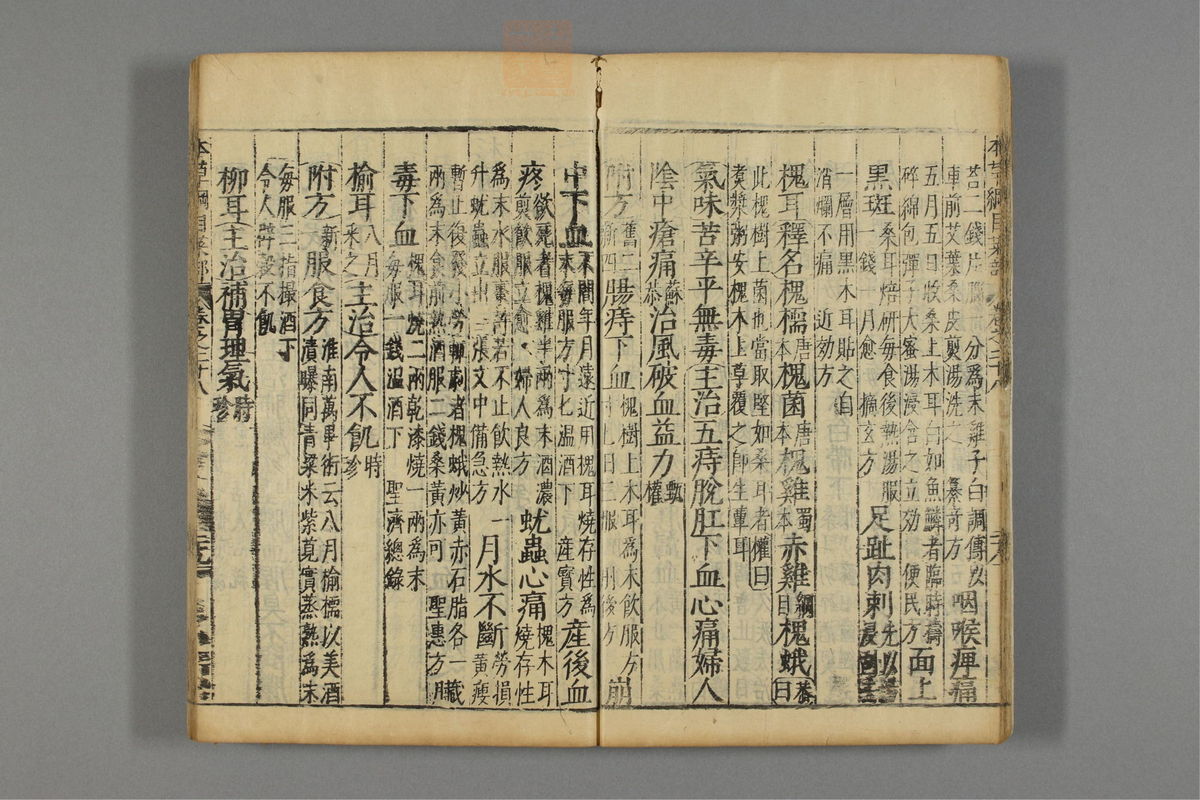 本草綱目菜部 卷之二十八
苔二錢片腦一分爲末雞子白調傅及
車前艾葉桑皮剪湯洗之 纂奇方
咽喉痺痛
五月五日收桑上木耳白如魚鱗者臨時擣
碎綿包彈子大蜜湯浸含之立効 便民方
面上
黑斑
桑耳焙研每食後熱湯服
一錢一月愈 摘玄方
足趾肉刺
先以
浸
一層用黑木耳貼之自
消爛不痛 近効方
槐耳釋名槐檽唐本槐菌唐本槐雞蜀本赤雞綱目槐蛾
此槐樹上菌也當取堅如桑耳者權曰
煑漿粥安槐木上草覆之即生蕈耳
氣味苦辛平無毒主治五痔脫肛下血心痛婦人
陰中瘡痛蘇恭治風破血益力甄權
附方舊二新四腸痔下血
槐樹上木耳爲末飲服方
寸匕日三服 肘後方
崩
中下血
不問年月遠近用槐耳燒存性爲
末每服方寸匕溫酒下 產寶方
產後血
疼
欲死者槐雞半兩爲末酒濃
煎飲服立愈 婦人良方
蚘蟲心痛
槐木耳
燒存性
爲末水服棗許若不止飲熱水一
升蚘蟲立出 張文中備急方
月水不斷
勞損
黃瘦
暫止復發小勞輒劇者槐蛾炒黃赤石脂各一
兩爲末食前熱酒服二錢桑黃亦可 聖惠方
臟
毒下血
槐耳燒二兩乾漆燒一兩爲末
每服一錢溫酒下 聖濟總錄
榆耳八月采之主治令人不飢時珍
附方新一服食方
淮南萬畢術云八月榆檽以美酒
漬曝同青粱米紫莧實蒸熟爲末
每服三指撮酒下
令人辟穀不飢
柳耳主治補胃理氣時珍
本草綱目菜部 卷之二十八